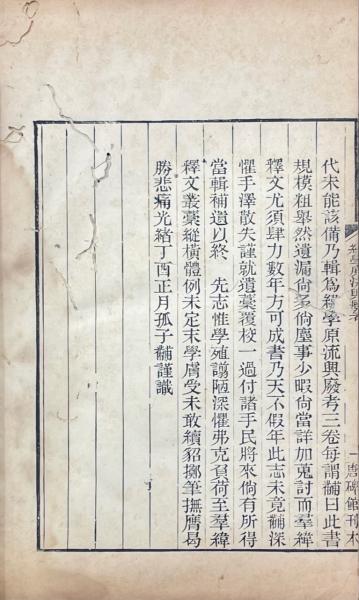 代未能該備乃輯爲緯學原流興廢考三卷每謂黼曰此書
規模粗舉然遺漏尚多倘塵事少暇尚當詳加蒐討而羣緯
釋文尤須肆力數年方可成書乃天不假年此志未竟黼深
懼手澤散失謹就遺藁覆校一過付諸手民將來倘有所得
當輯補遺以終 先志惟學殖譾陋深懼弗克負荷至羣緯
釋文叢藁縱橫體例未定末學膚受未敢續貂擲筆撫膺曷
勝悲痛光緒丁酉正月孤子黼謹識